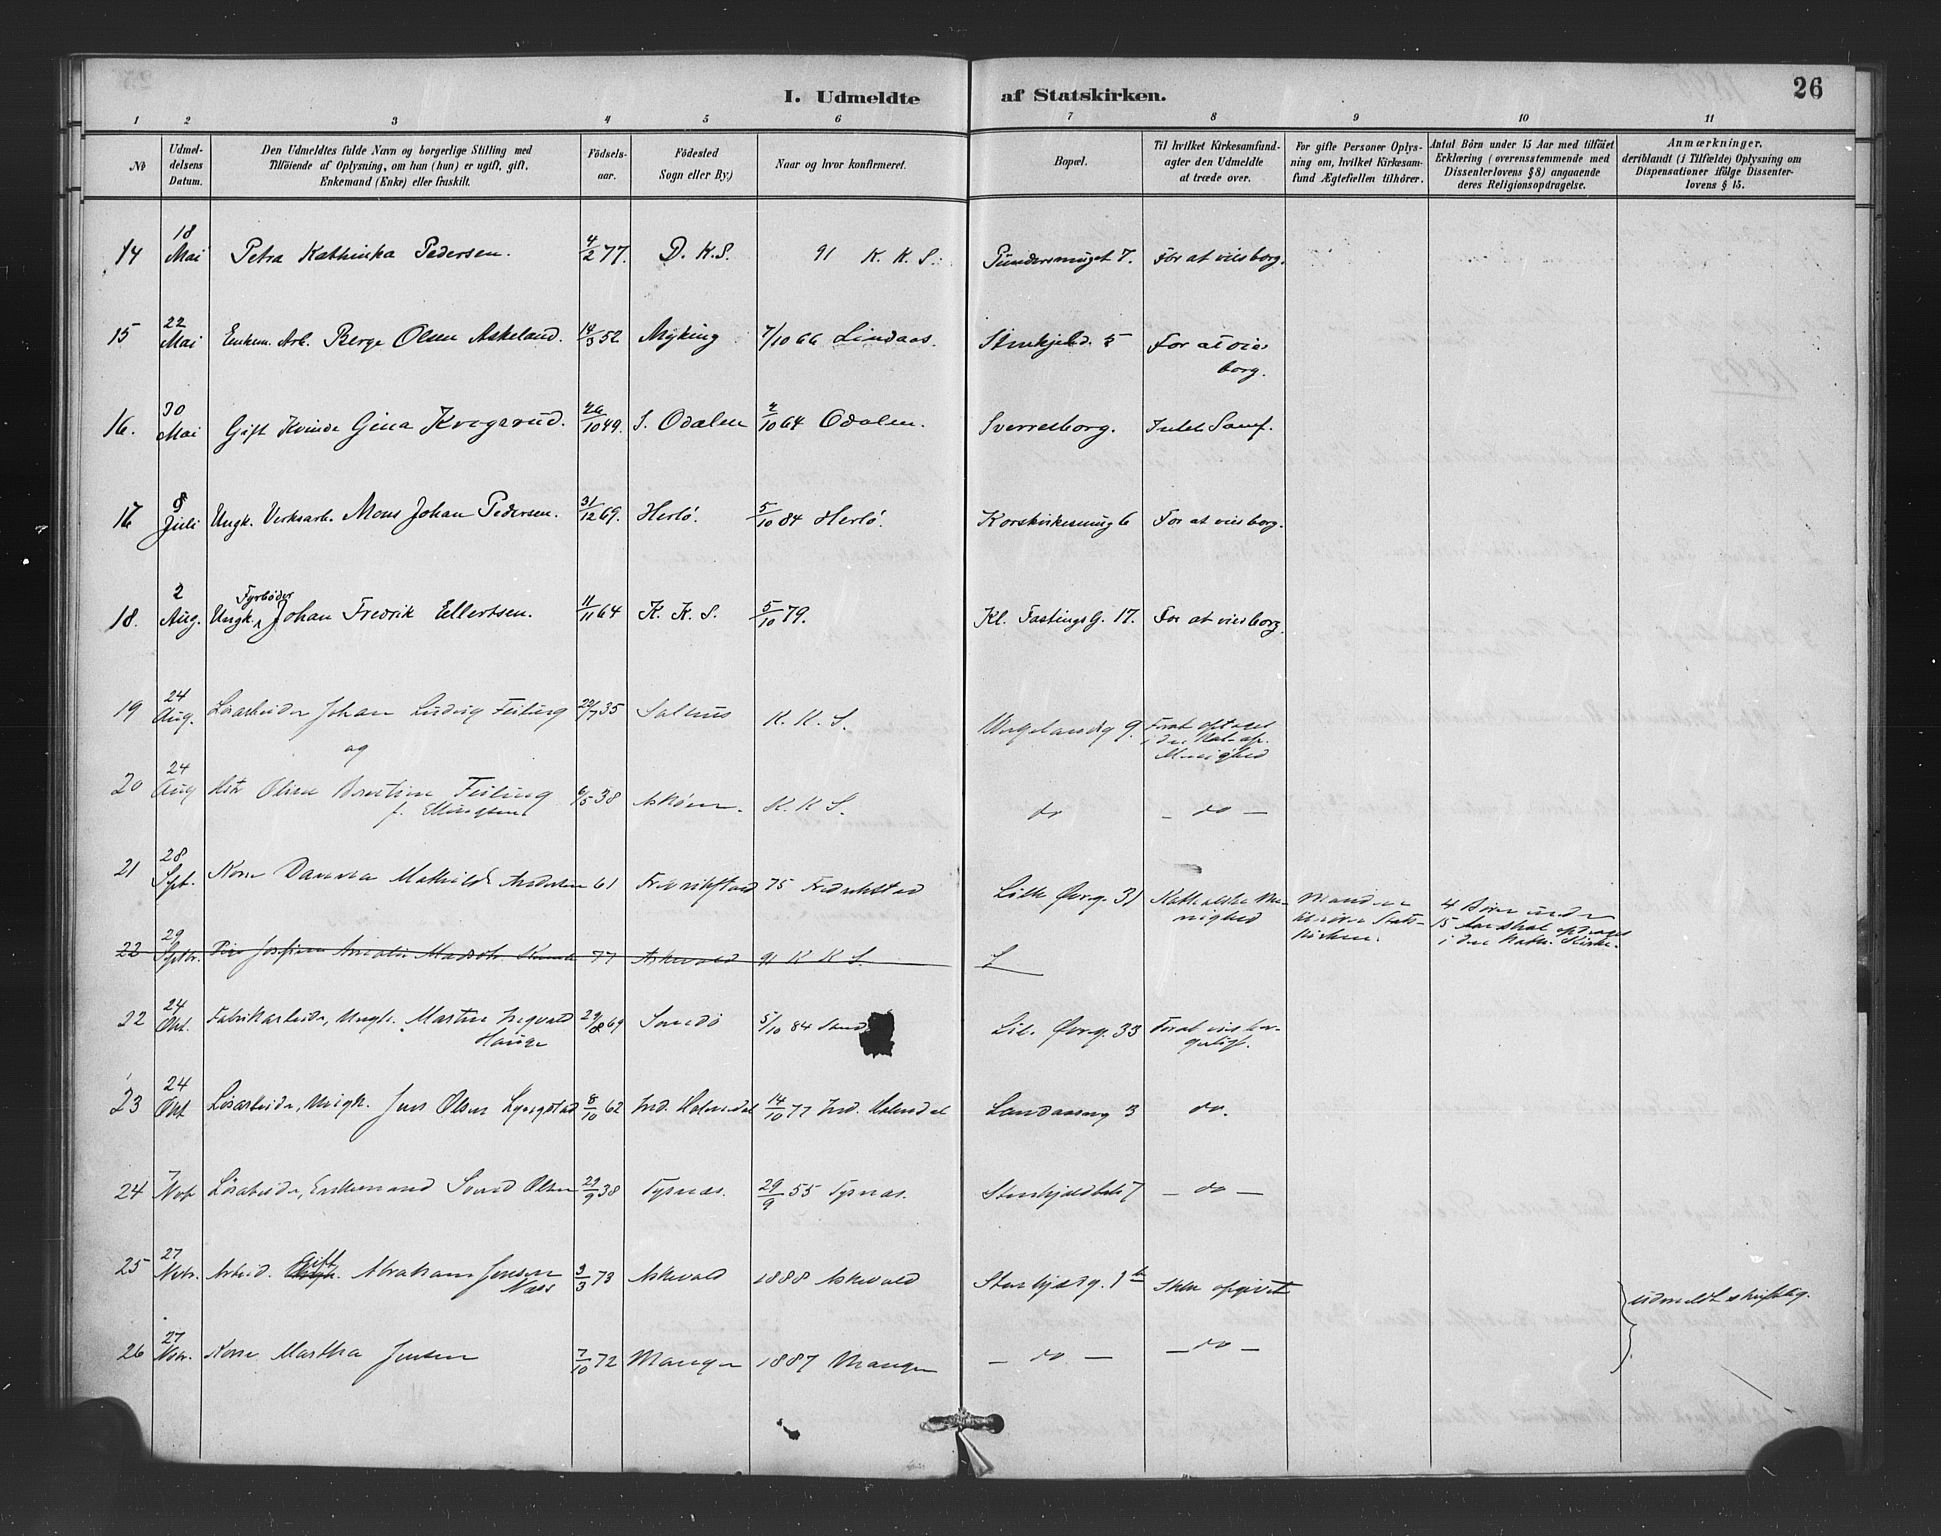 26
I. Udmeldte af Statskirken.
1 2 3 4 5 6 7 8 9 10 11
No | Udmel-delsens Datum. | Den Udmeldtes fulde Navn og borgerlige Stilling med Tilföiende af Oplysning, om han (hun) er ugift, gift, Enkemand (Enke) eller fraskilt. | Födsels-aar. | Födested Sogn eller By.) | Naar og hvor konfirmeret. | Bopæl. | Til hvilket Kirkesamfund-agter den Udmeldte at træde over. | For gifte Personer Oplys-ning om, hvilket Kirkesam-fund Ægtefællen tilhörer. | Antal Börn under 15 Aar med tilföiet Erklæring (overensstemmende med Dissenterlovens §8) angaaende deres Religionsopdragelse. | Anmærkninger, deriblandt (i Tilfælde) Oplysning om Dispensationer ifölge Dissenter-lovens § 15.
14 18 Mai Petra Kathinka Pedersen. 4/2 77. D. K. S. 91 K. K. S. 7. For at vies borg.
15 22 Mai Enkem. Arb. Berge Olsen Askeland. 14/3 52 Myking 7/10 66 Lindaas. Stenkjeld. 5 For at vies borg.
16. 30 Mai Gift Kvinde Gina Kregsrud. 26/10 49. S. Odalen 2/10 64 Odalen. Sverresborg. Indels Samf.
17 Juli Ungk. Verksarb. Mons Johan Pedersen. 31/12 69. Herlö. 5/10 84 Herlö. Korskirkesmug 6 For at vies borg.
18. 2 Aug. Ungk. Fyrböder Johan Fredrik Ellertsen. 11/11 64 K. K. S. 5/10 79. Kl. Fastingsg. 17. For at vies borg.
19 24 Aug. Lösarbeider Johan Ludvig Feiling 22/7 35 Salhus K. K. S. Wergelandsg 9. For at optages i den Menighed
og
20 24 Aug Olina Feiling f. Ellingsen 6/5 38 Asköen. K. K. S. do — do —
21 28 Spt. Kone Mathilde Andersen 61 Fredrikstad 75 Fredrikstad Lille Övreg. 31 Katholske Menighed Manden tilhörer Statskirken. 4 Börn under 15 Aar skal opdrages i den Kath. Kirke.
22 29 Sptbr. Josefine Amalie 77 Askevold 91 K K S.
22 24 Okt. Fabrikarbeider, Ungk. Martin Ingvald Hauge 29/8 69 Sandö 5/10 84 Lil. Övreg. 33 For at vies borgerligt.
23 24 Okt Lösarbeider, Ungk. Jens Olsen 8/10 62 Ind. Holmedal 14/10 77 Ind. Holmedal 3 do.
24 7 Nov Lösarbeider, Enkemand Olsen 29/9 38 Tysnæs. 29/9 55 Tysnæs. 7 — do —
25 27 Novr. Arbeid. Gift Abraham Jensen Næss 3/3 73 Askevold 1888 Askevold Ikke opgivet
udmeldt skriftlig.
26 27 Novr. Kone Martha Jensen 7/10 72 Manger 1887 Manger — do — — do —